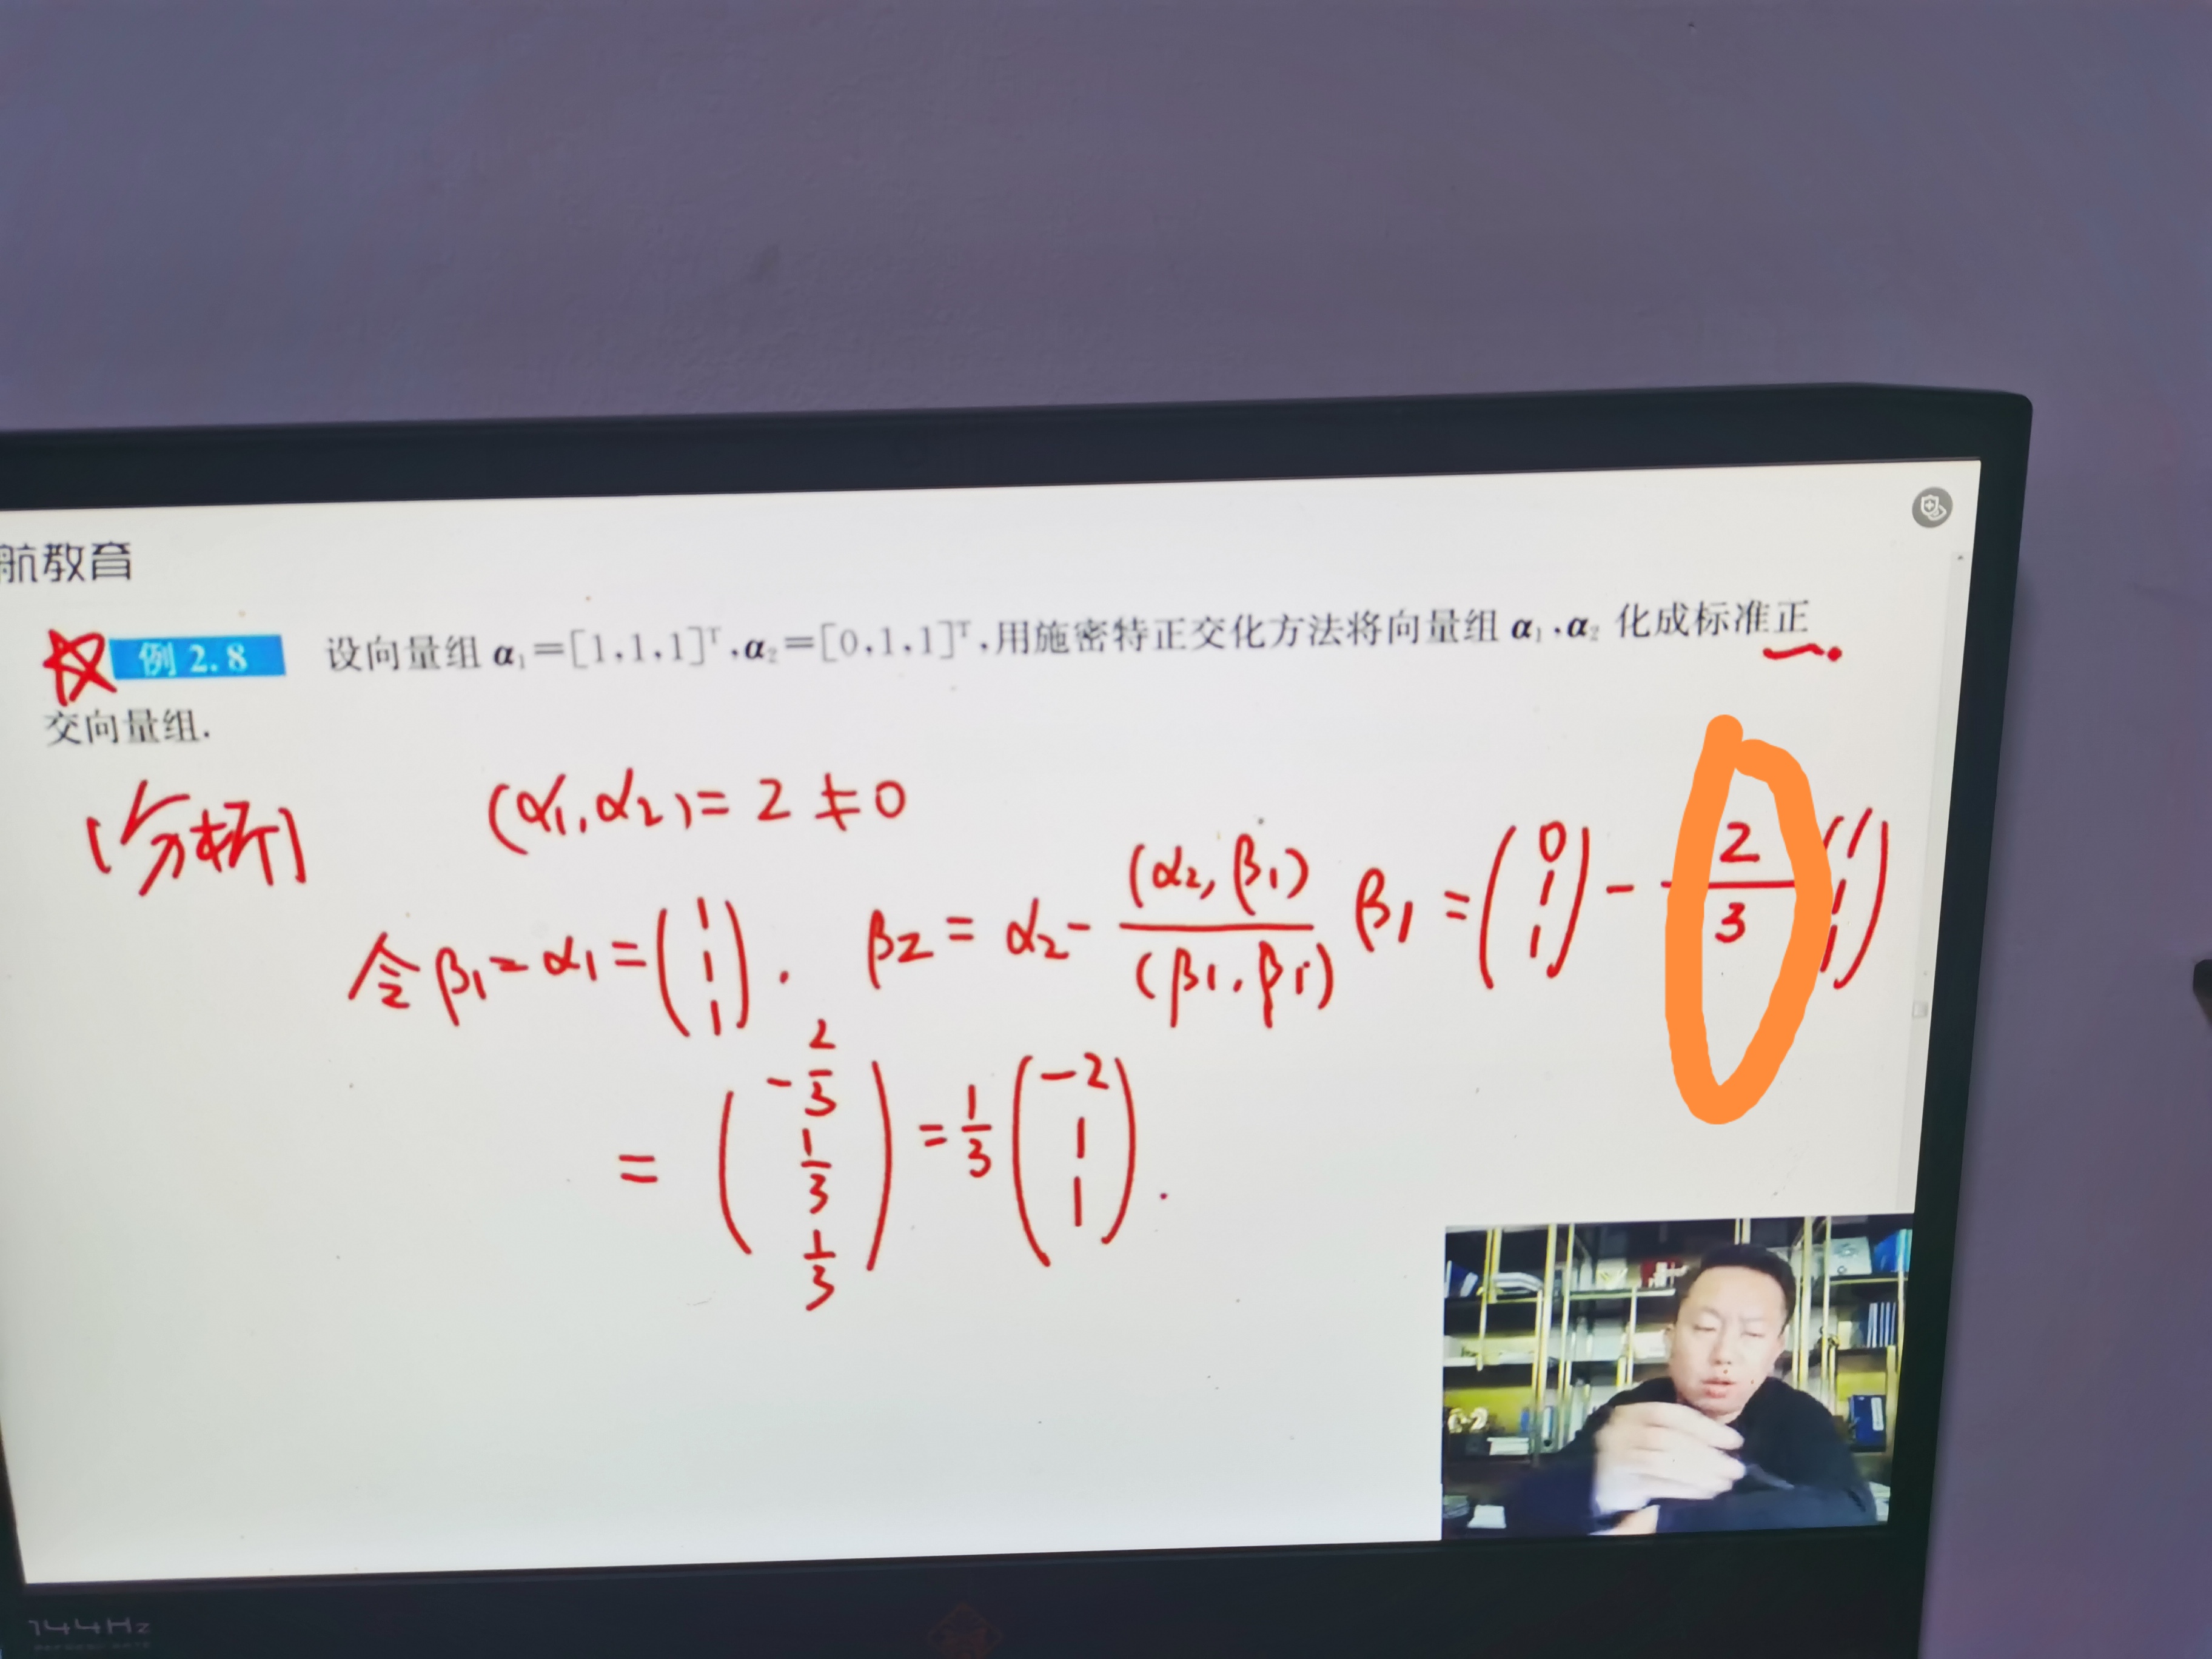 航教育
例 2.8 设向量组 α₁=[1,1,1]ᵀ,α₂=[0,1,1]ᵀ,用施密特正交化方法将向量组 α₁,α₂ 化成标准正
交向量组.
[分析] (α₁,α₂)=2≠0
令β₁=α₁=(1 1 1). β₂=α₂-(α₂,β₁)/(β₁,β₁) β₁=(0 1 1)-2/3(1 1 1)
=(-2/3 1/3 1/3)=1/3(-2 1 1).
144Hz